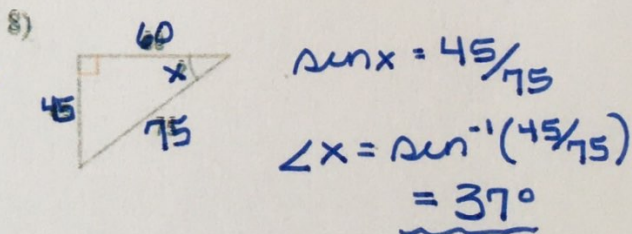 8)
60
x
45
75
sin x = 45/75
∠x = sin⁻¹(45/75)
= 37°